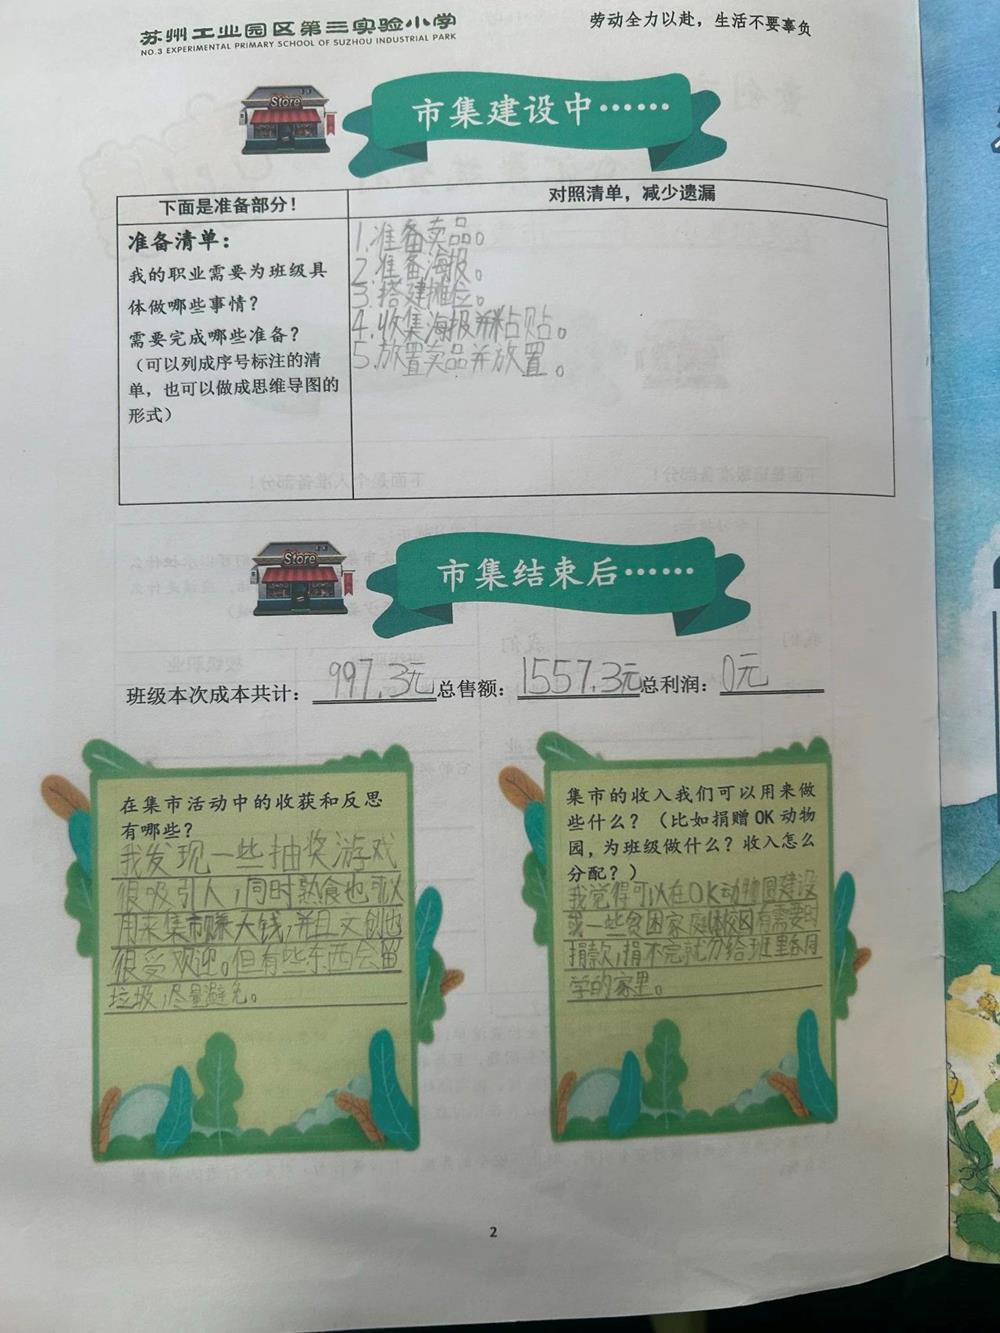 苏州工业园区第三实验小学
NO.3 EXPERIMENTAL PRIMARY SCHOOL OF SUZHOU INDUSTRIAL PARK
劳动全力以赴，生活不要辜负
Store
市集建设中……
下面是准备部分！
对照清单，减少遗漏
准备清单：
我的职业需要为班级具
体做哪些事情？
需要完成哪些准备？
（可以列成序号标注的清
单，也可以做成思维导图的
形式）
1.准备卖品。
2.准备海报。
3.搭建摊位。
4.收集海报并粘贴。
5.放置卖品并放置。
Store
市集结束后……
班级本次成本共计： 997.3元 总售额： 1557.3元 总利润： 0元
在集市活动中的收获和反思
有哪些？
我发现一些抽奖游戏
很吸引人，同时熟食也可以
用来集市赚大钱，并且文创也
很受欢迎。但有些东西会留
垃圾，尽量避免。
集市的收入我们可以用来做
些什么？（比如捐赠 OK 动物
园，为班级做什么？收入怎么
分配？）
我觉得可以在OK动物园建设
或一些贫困家庭 有需要的
捐款，捐不完就分给班里各同
学的家里。
2